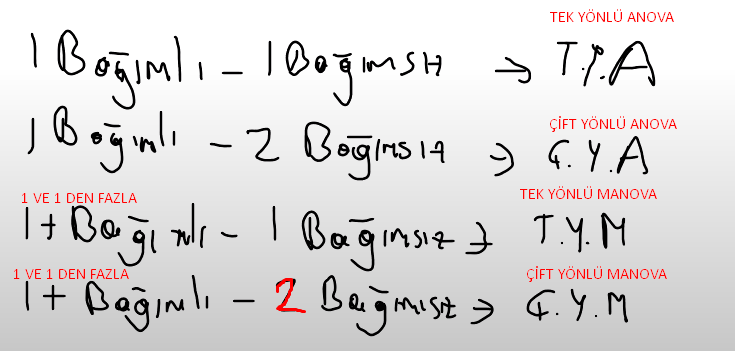 TEK YÖNLÜ ANOVA
1 Bağımlı - 1 Bağımsız → T.Y.A
ÇİFT YÖNLÜ ANOVA
1 Bağımlı - 2 Bağımsız → Ç.Y.A
1 VE 1 DEN FAZLA TEK YÖNLÜ MANOVA
1+ Bağımlı - 1 Bağımsız → T.Y.M
1 VE 1 DEN FAZLA ÇİFT YÖNLÜ MANOVA
1+ Bağımlı - 2 Bağımsız → Ç.Y.M